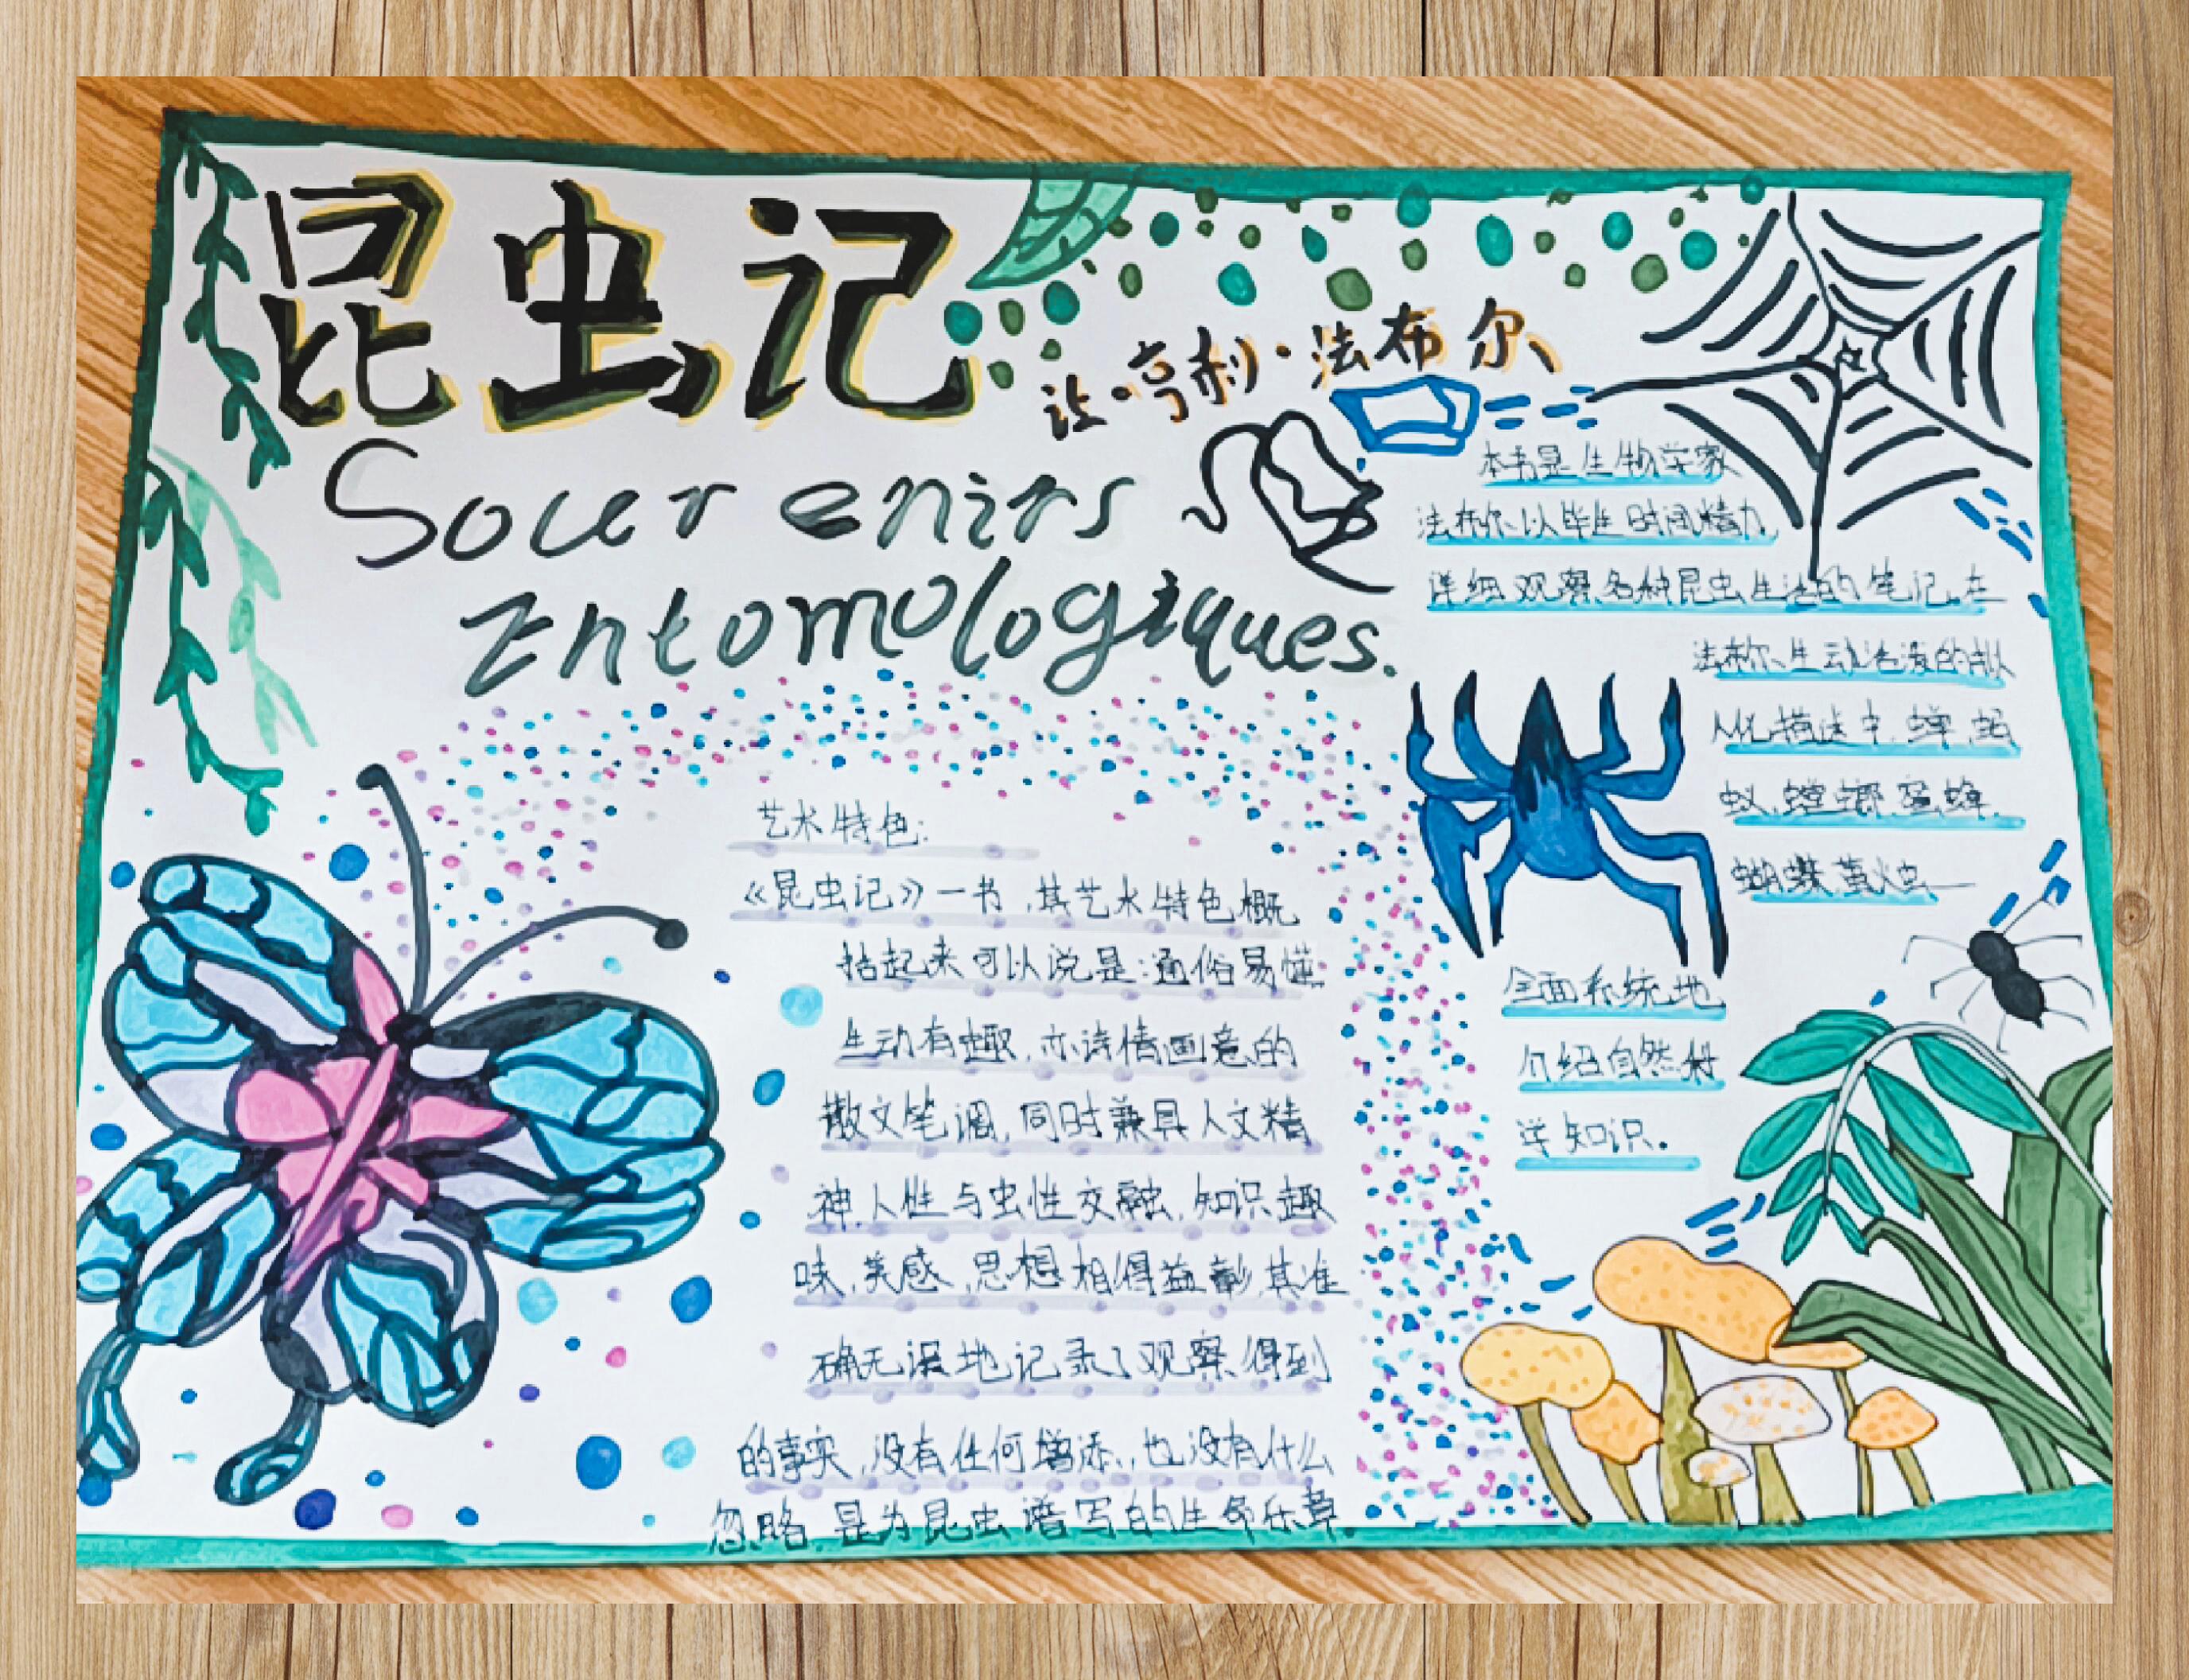 昆虫记
让·亨利·法布尔
Souvenirs
Entomologiques.
本书是生物学家
法布尔以毕生时间精力
详细观察各种昆虫生活的笔记.在
法布尔生动活泼的拟
人化描述中.蝉.蚂
蚁.螳螂.蜜蜂.
蝴蝶.萤火虫—
全面系统地
介绍自然科
学知识.
艺术特色:
《昆虫记》一书,其艺术特色概
括起来可以说是:通俗易懂
生动有趣,亦诗情画意的
散文笔调,同时兼具人文精
神.人性与虫性交融,知识趣
味,美感,思想相得益彰,其准
确无误地记录了观察得到
的事实,没有任何增添,也没有什么
忽略.是为昆虫谱写的生命乐章.